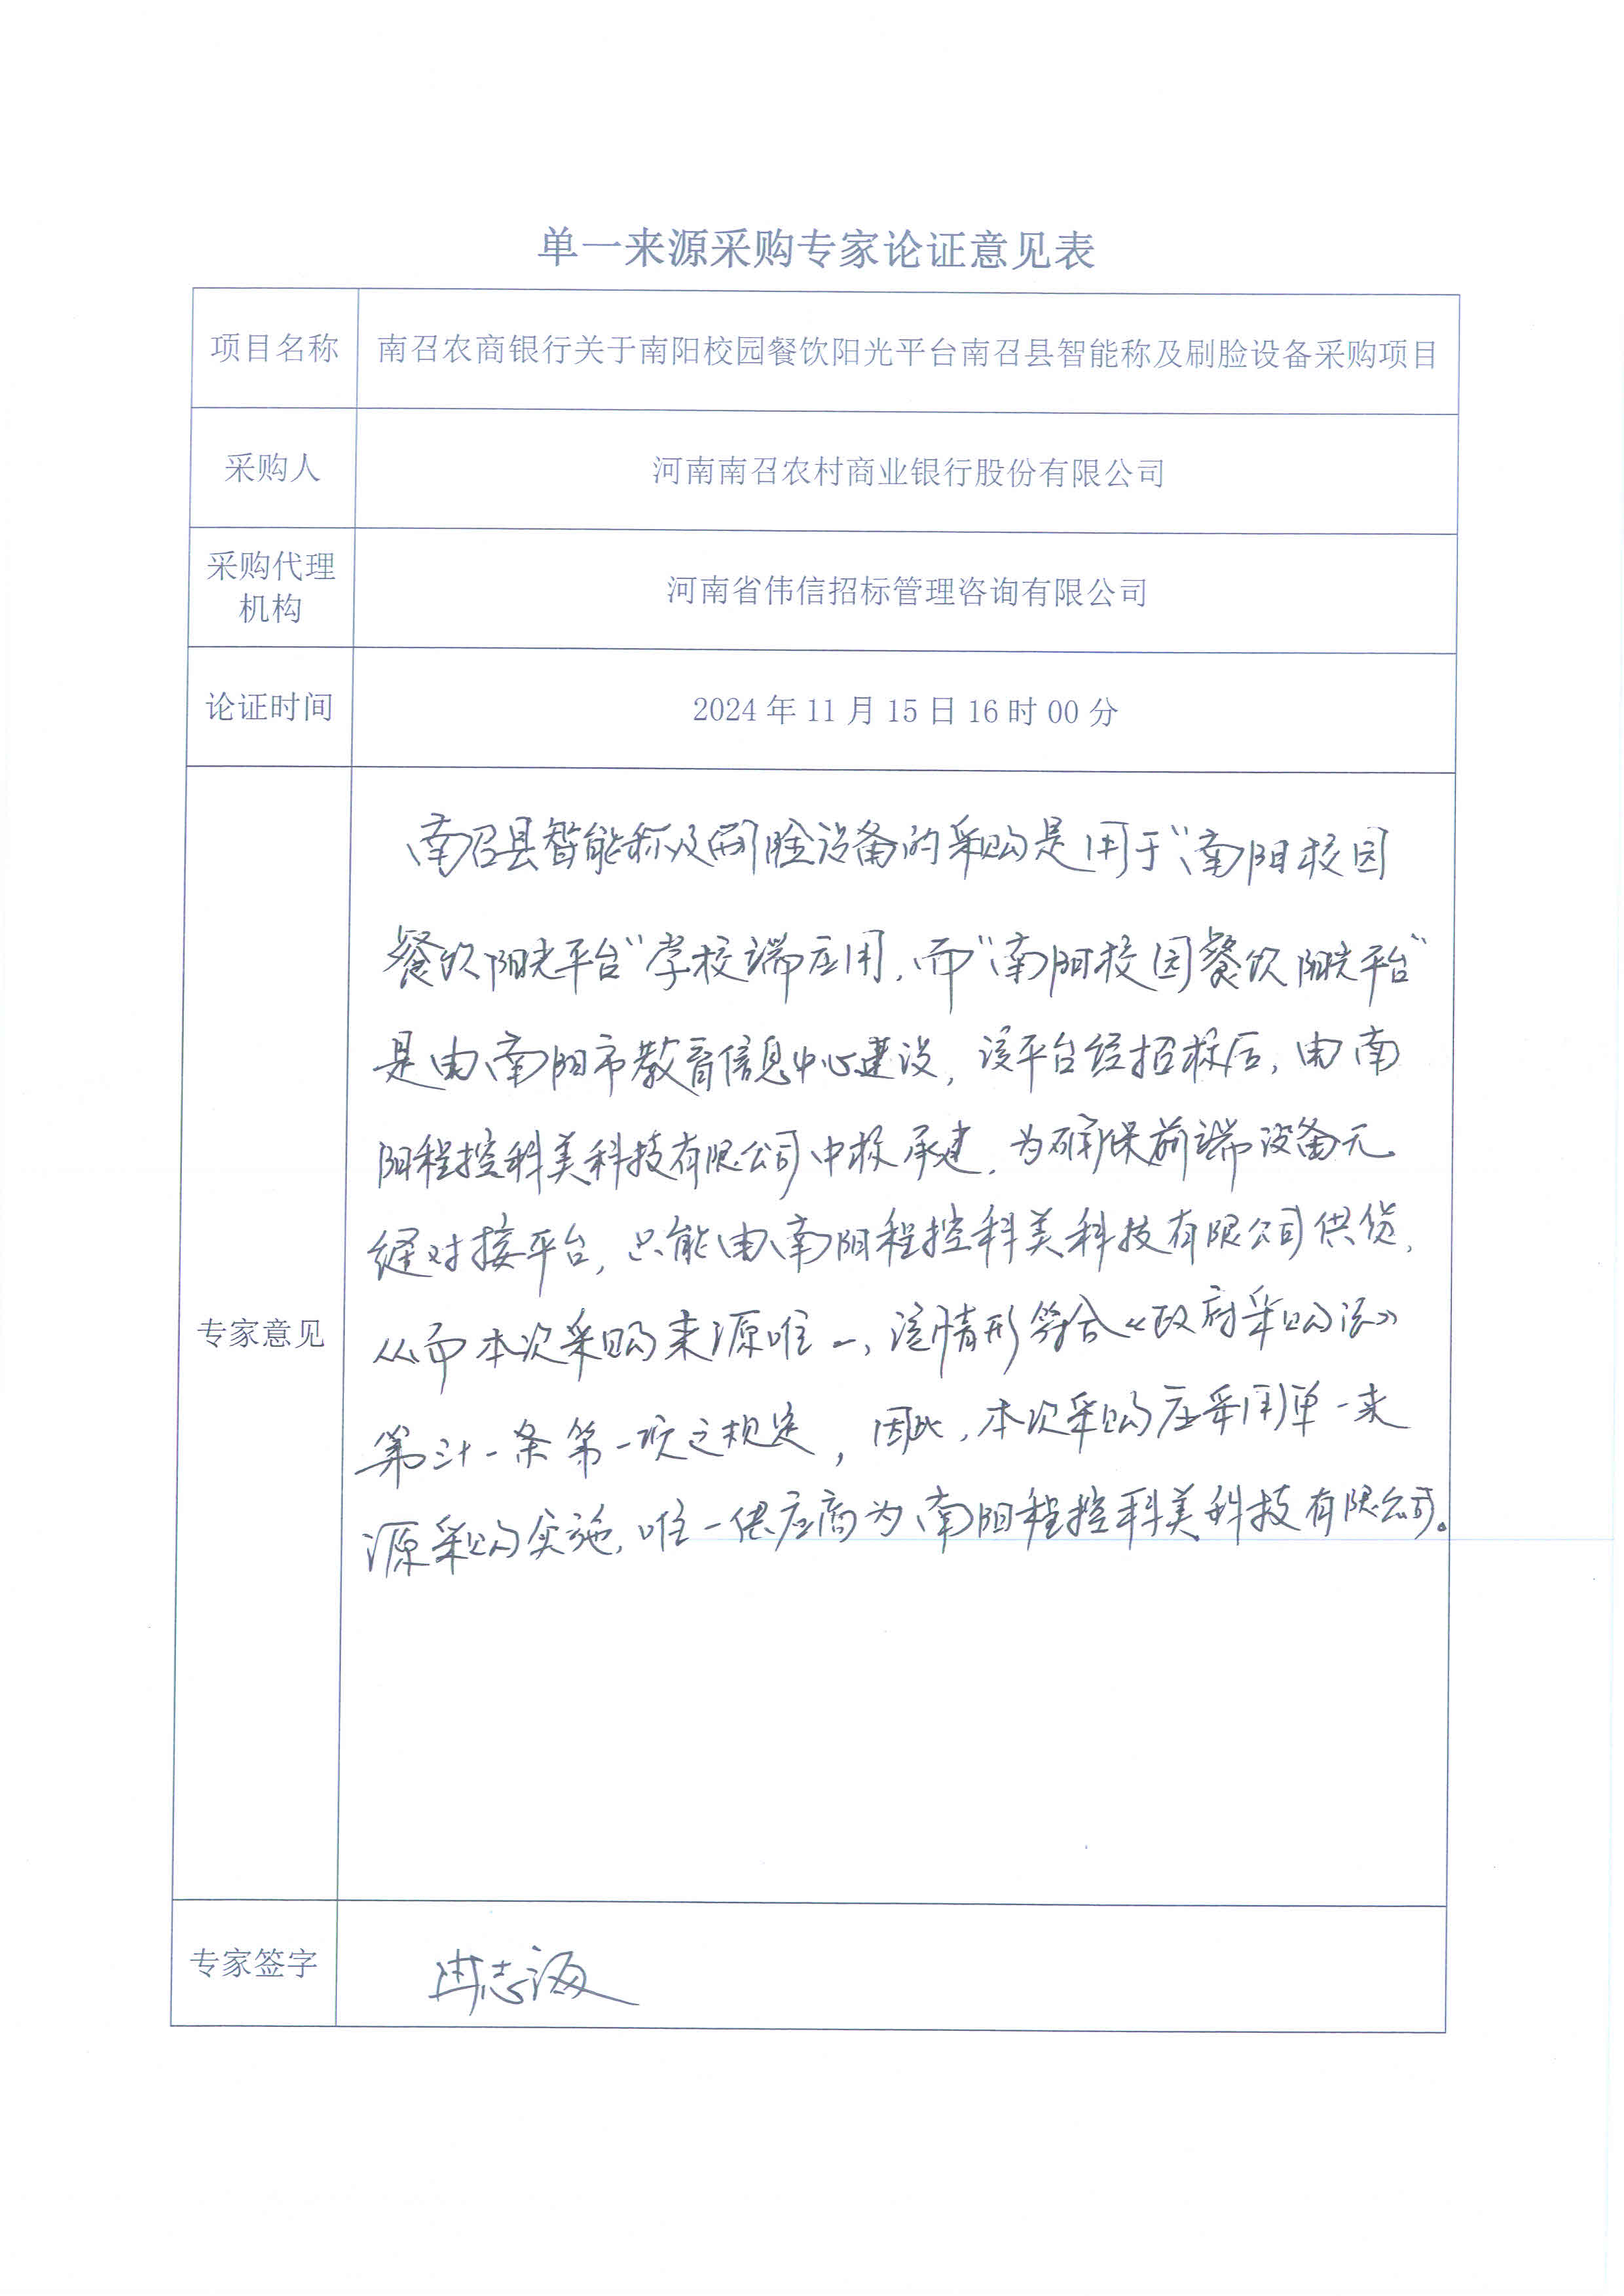 单一来源采购专家论证意见表
项目名称
南召农商银行关于南阳校园餐饮阳光平台南召县智能称及刷脸设备采购项目
采购人
河南南召农村商业银行股份有限公司
采购代理
机构
河南省伟信招标管理咨询有限公司
论证时间
2024年11月15日16时00分
专家意见
南召县智能称及刷脸设备的采购是用于“南阳校园
餐饮阳光平台”学校端应用,而“南阳校园餐饮阳光平台”
是由南阳市教育信息中心建设,该平台经招标后,由南
阳程控科美科技有限公司中标承建,为确保前端设备无
缝对接平台,只能由南阳程控科美科技有限公司供货,
从而本次采购来源唯一,该情形符合《政府采购法》
第三十一条第一项之规定,因此,本次采购应采用单一来
源采购实施,唯一供应商为南阳程控科美科技有限公司。
专家签字